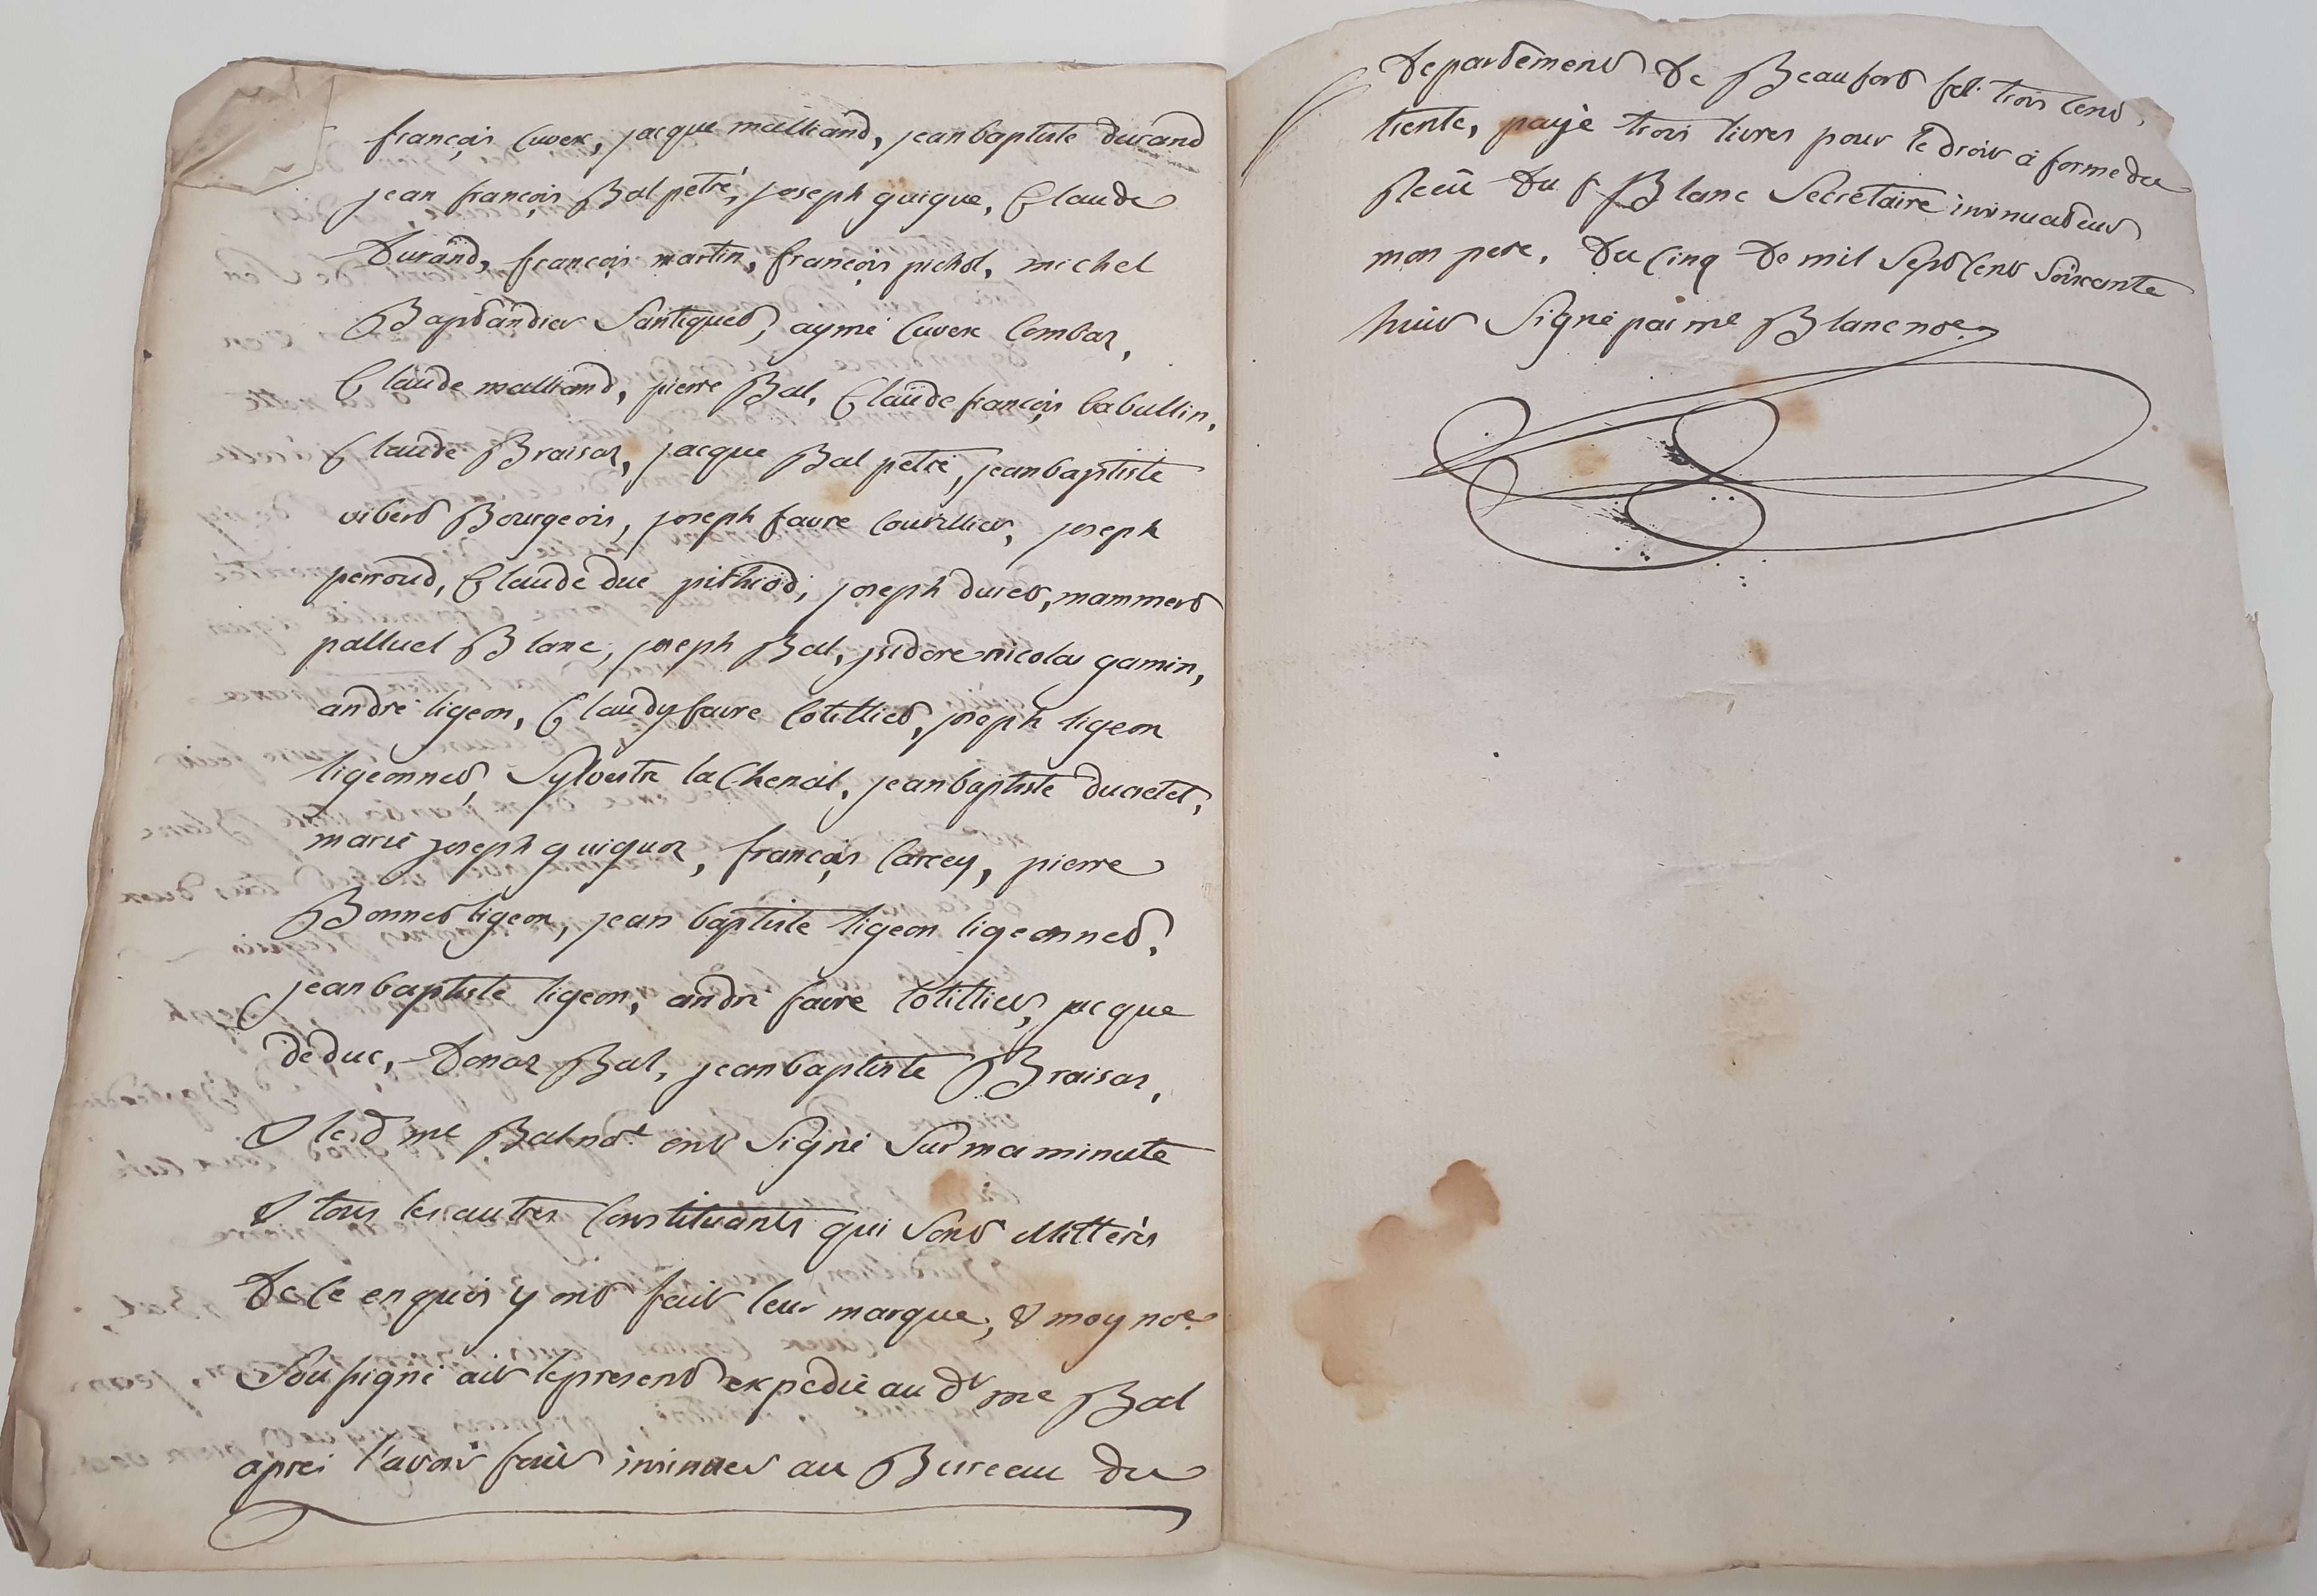 françois Cuvex, jacque malliand, jeanbaptiste durand
jean françois Bal petré, joseph guigue, Claude
Durand, françois martin, françois pichol, michel
Baptandier Santiquet, aymé Cuvex Combaz,
Claude malliand, pierre Bal, Claude françois Cabullin,
Claude Braisaz, jacque Bal petré, jeanbaptiste
vibert Bourgeois, joseph favre Couvillier, joseph
perroud, Claude duc pithiod, joseph ducret, mammert
palluel Blanc, joseph Bal, jsidore nicolas gamin,
andré ligeon, Claudy favre Cotilliet, joseph ligeon
ligeonnet, Sylvestre la Chenal, jeanbaptiste ducretet,
marie joseph guiguoz, françois Carcey, pierre
Bonnet ligeon, jean baptiste ligeon ligeonnet,
jeanbaptiste ligeon, andré favre Cotillier, jacque
deduc, Donaz Bal, jeanbaptiste Braisaz,
& led me Bal nore ont Signé Sur ma minute
& tous les autres Constituants qui Sont illitterés
De ce enquis y ont fait leur marque, & moy nore
Sousigné ait le present expedié au dt me Bal
aprei l'avoir fait insinuer au Bureau du
departement de Beaufort fol. trois cent
trente, payé trois livres pour le droit à forme du
Reçû du Sr Blanc Secretaire insinuateur
mon pere, du Cinq de mil Sept Cent Soixante
huit Signé par me Blanc nore